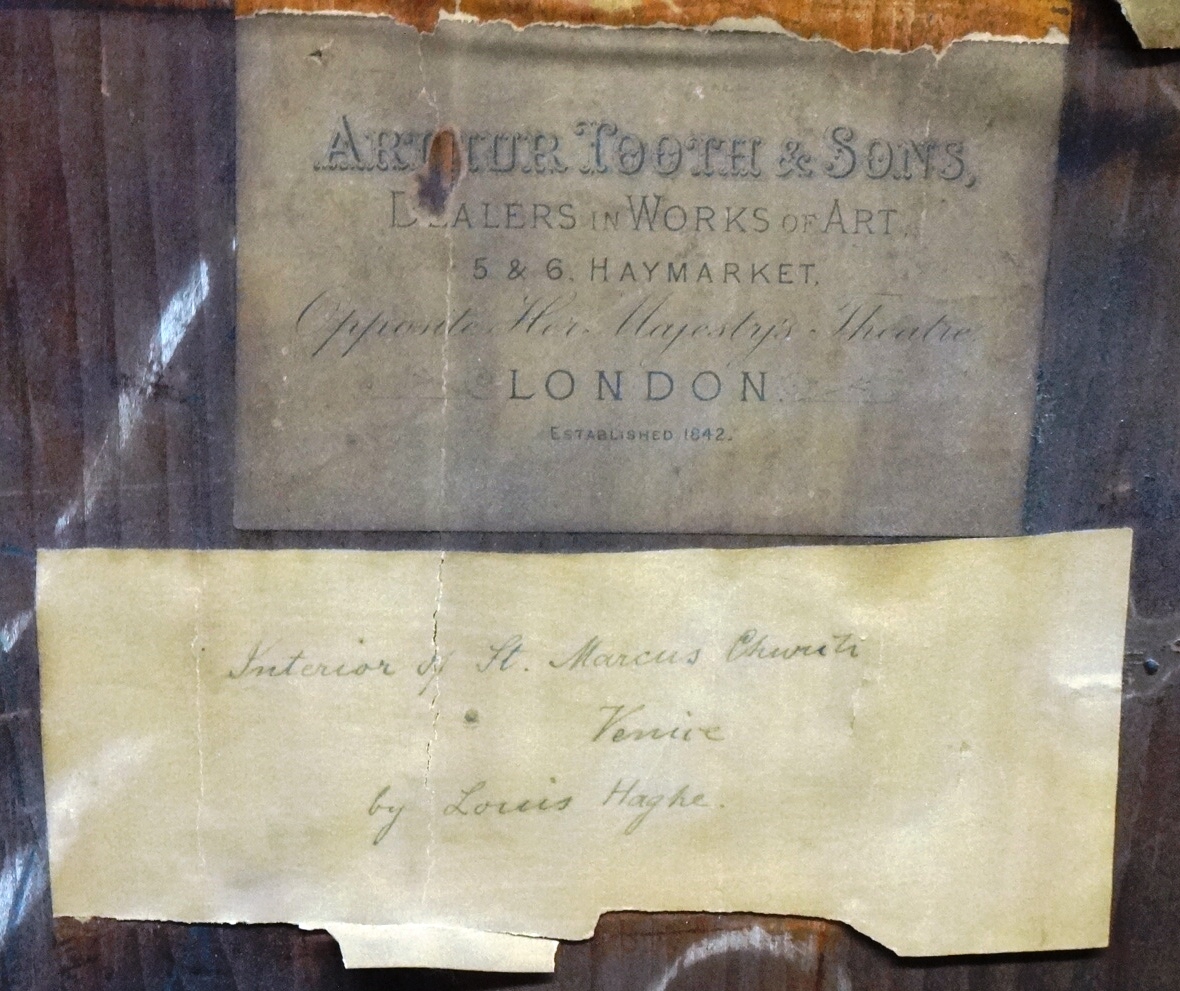 ARTHUR TOOTH & SONS,
DEALERS IN WORKS OF ART.
5 & 6, HAYMARKET,
Opposite Her Majesty's Theatre
LONDON.
ESTABLISHED 1842.
Interior of St. Marcus Church
Venice
by Louis Haghe.